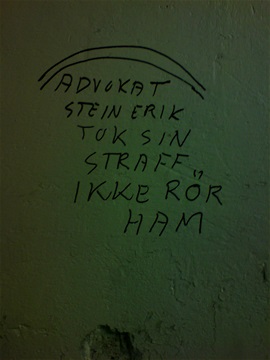 ADVOKAT
STEIN ERIK
TOK SIN
STRAFF
IKKE RÖR
HAM